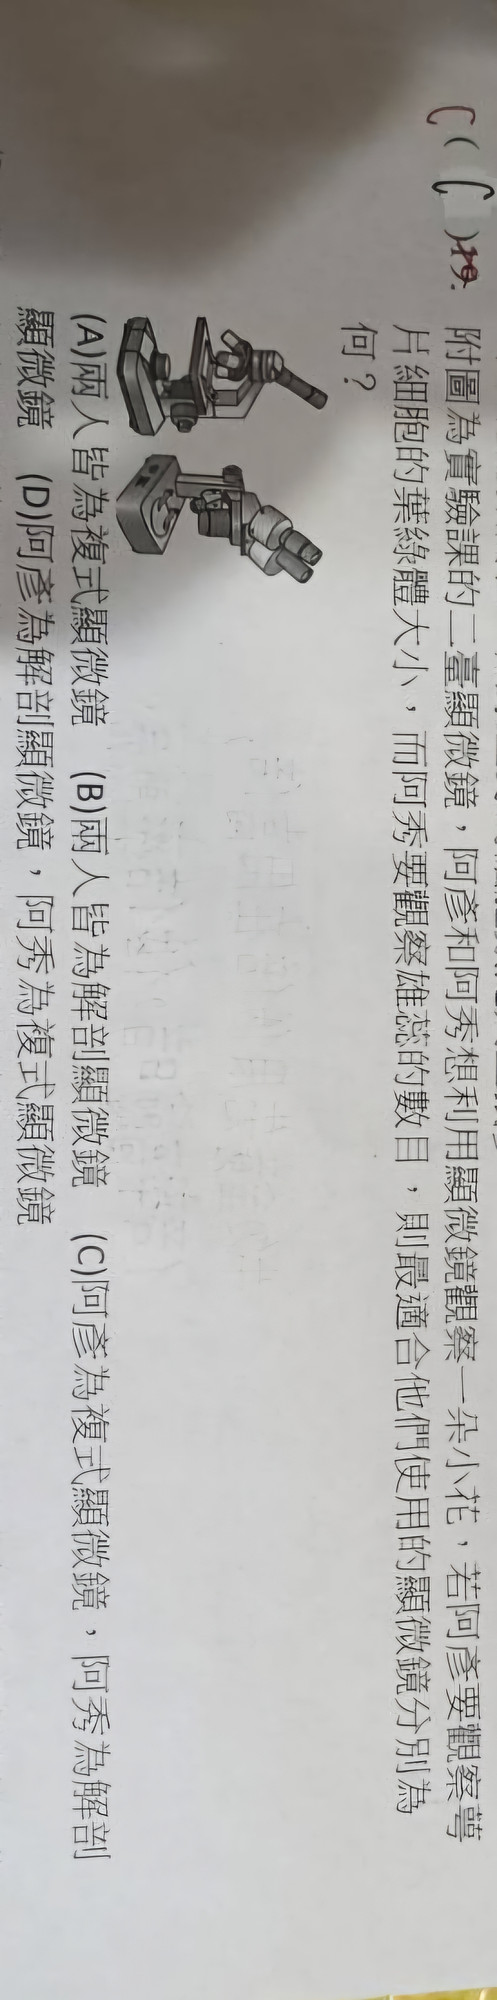 C( C )19.
附圖為實驗課的二臺顯微鏡，阿彥和阿秀想利用顯微鏡觀察一朵小花，若阿彥要觀察萼
片細胞的葉綠體大小，而阿秀要觀察雄蕊的數目，則最適合他們使用的顯微鏡分別為
何？
(A)兩人皆為複式顯微鏡 (B)兩人皆為解剖顯微鏡 (C)阿彥為複式顯微鏡，阿秀為解剖
顯微鏡 (D)阿彥為解剖顯微鏡，阿秀為複式顯微鏡